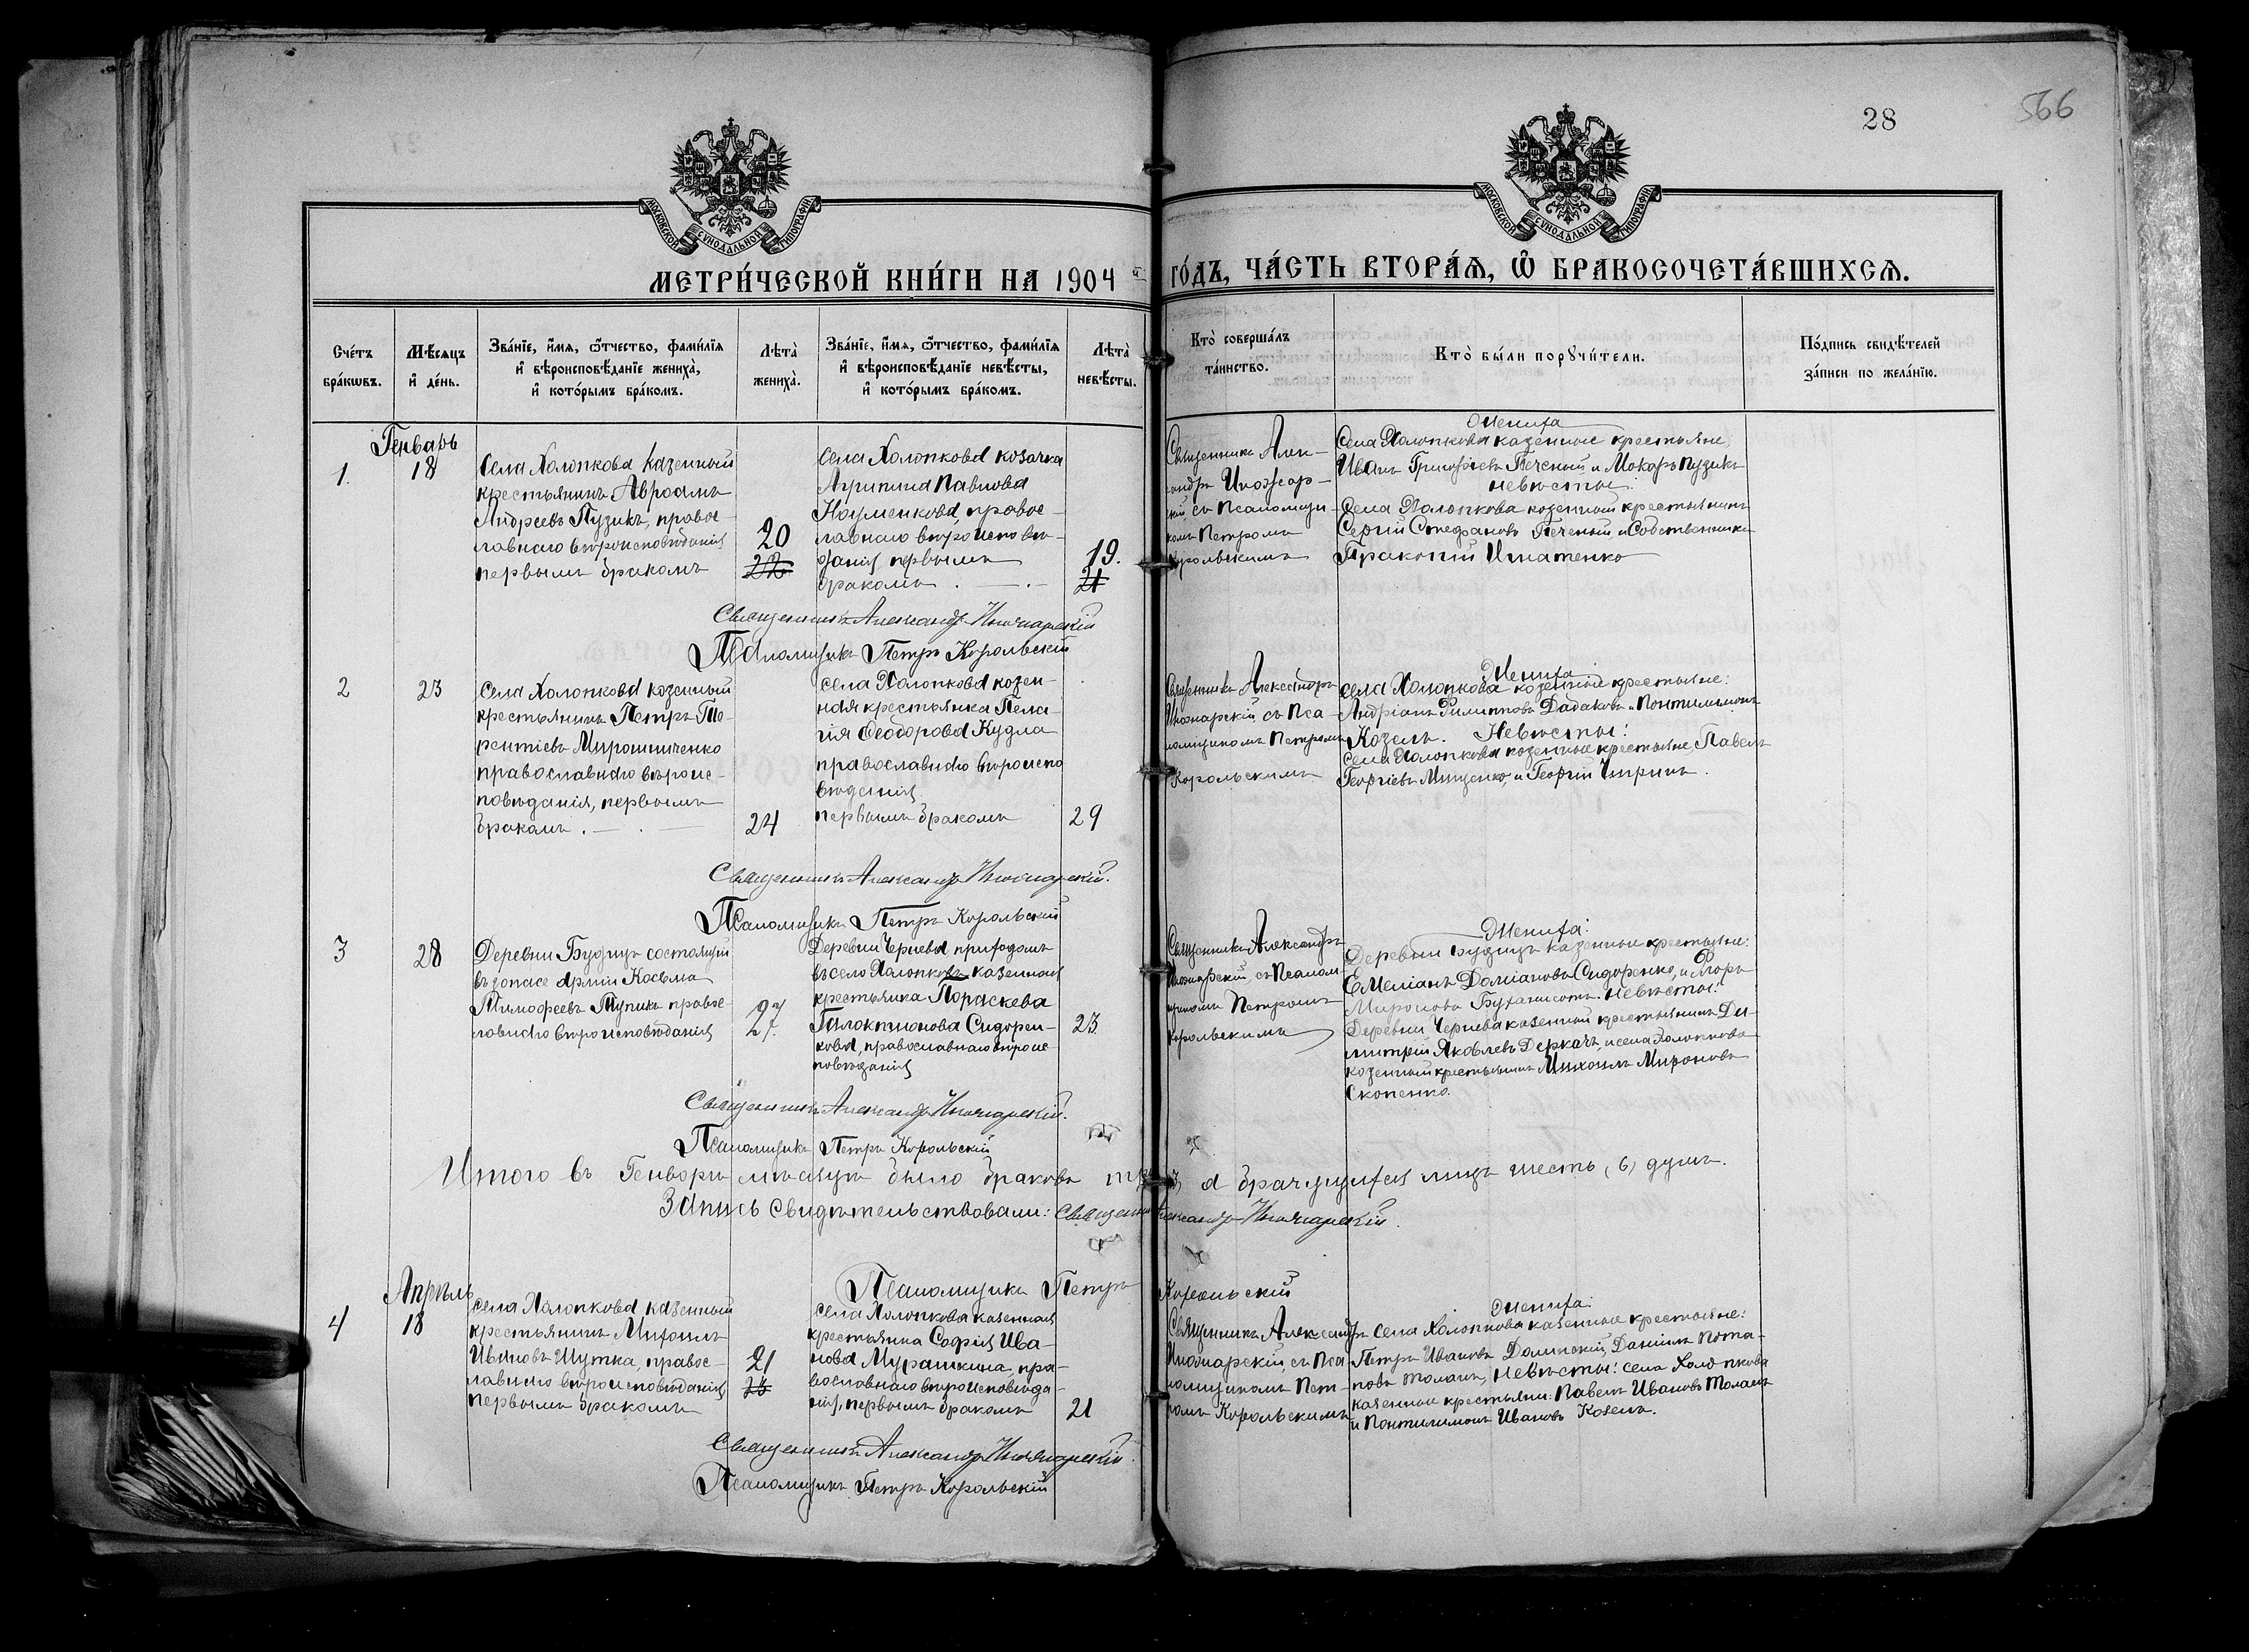 28
566
МОСКОВСКОЙ СѴНОДАЛЬНОЙ ТИПОГРАФІИ
МОСКОВСКОЙ СѴНОДАЛЬНОЙ ТИПОГРАФІИ
МЕТРИ́ЧЕСКОЙ КНИ́ГИ НА 1904 й ГО́ДЪ, ЧА́СТЬ ВТОРА́Я, Ѿ БРАКОСОЧЕТА́ВШИХСЯ.
Сче́тъ бра́кѡвъ.
Мѣ́сяцъ и҆ де́нь.
Зва́нїе, и҆́мя, ѻ҆́тчество, фами́лїя и҆ вѣроисповѣ́данїе жениха̀, и҆ кото́рымъ бра́комъ.
Лѣта̀ жениха̀.
Зва́нїе, и҆́мя, ѻ҆́тчество, фами́лїя и҆ вѣроисповѣ́данїе невѣ́сты, и҆ кото́рымъ бра́комъ.
Лѣта̀ невѣ́сты.
Кто̀ соверша́лъ та́инство.
Кто̀ бы́ли порꙋчи́тели.
По́дпись свидѣ́телей за́писи по жела́нїю.
Генварь
1.
18
Села Холопкова казенный
крестьянинъ Авраамъ
Андреевъ Пузикъ, правос-
лавнаго вѣроисповѣданія
первымъ бракомъ
20
22
Села Холопкова козачка
Агрипина Павлова
Науменкова, правос-
лавнаго вѣроисповѣ-
данія первымъ
бракомъ
19.
21
Священникъ Алек-
сандръ
съ Псаломщи-
комъ Петромъ
Корольскимъ
Жениха
Села Холопкова казенные крестьяне
Иванъ Григорьевъ Печеный и Макаръ Пузикъ
невѣсты:
Села Холопкова казенный крестьянинъ
Сергій Стефановъ Печеный и Собственникъ
Пракопій Игнатенко
Священникъ Александръ
Псаломщикъ Петръ Корольскій
2
23
Села Холопкова казенный
крестьянинъ Петръ Те-
рентіевъ Мирошниченко
православнаго вѣроис-
повѣданія, первымъ
бракомъ.
24
села Холопкова казен-
ная крестьянка Пела-
гія Ѳеодорова Кудла
православнаго вѣроиспо
вѣданія
первымъ бракомъ
29
Священникъ Александръ
съ Пса-
ломщикомъ Петромъ
Корольскимъ
Жениха
села Холопкова казенные крестьяне:
Андріанъ Филипповъ Дадаковъ и Понтилимонъ
Козелъ. Невѣсты:
Села Холопкова казенные крестьяне, Павелъ
Георгіевъ Мищенко, и Георгій Чиринъ.
Священникъ Александръ
Псаломщикъ Петръ Корольскій
3
28
Деревни Будищъ состоящій
въ запасѣ арміи Косьма
Тимофеевъ Тупикъ правос-
лавнаго вѣроисповѣданія
27.
Деревни Чернева приходомъ
въ село Холопковъ казенная
крестьянка Пораскева
Галактионова Сидорен-
кова, православнаго вѣроис
повѣданія
23
Священникъ Александръ
съ Псалом
щикомъ Петромъ
Корольскимъ
Жениха:
Деревни Будищъ казенные крестьяне:
Емеліанъ Даміановъ Сидоренко, и Егоръ
Миронова невѣсты:
Деревни Чернева казенный крестьянинъ Ди-
митрій Яковлевъ Деркачъ, и села Холопкова
казенный крестьянинъ Михаилъ Мироновъ
Скопенко.
Священникъ Александръ
Псаломщикъ Петръ Корольскій
Итого въ Генварѣ мѣсяцѣ было браковъ три (3) а брачущихся лицъ шесть (6) душъ.
Запись свидѣтельствовали: Священникъ Александръ
Псаломщикъ Петръ Корольскій
Апрѣль
4
18
Села Холопкова казенный
крестьянинъ Михаилъ
Ивановъ Шутка, правос-
лавнаго вѣроисповѣданія
первымъ бракомъ
21
Села Холопкова казенная
крестьянка Софія Ива-
нова Мурашкина, пра-
вославнаго вѣроисповѣда-
нія, первымъ бракомъ
21
Священникъ Александръ
съ Пса
ломщикомъ Пет-
ромъ Корольскимъ
Жениха:
Села Холопкова казенные крестьяне:
Петръ Ивановъ Долинскій, Даніилъ Пота-
повъ Толмачъ, Невѣсты: села Холопкова
казенные крестьяни: Павелъ Ивановъ Толмачъ
и Понтилимонъ Ивановъ Козелъ.
Священникъ Александръ
Псаломщикъ Петръ Корольскій